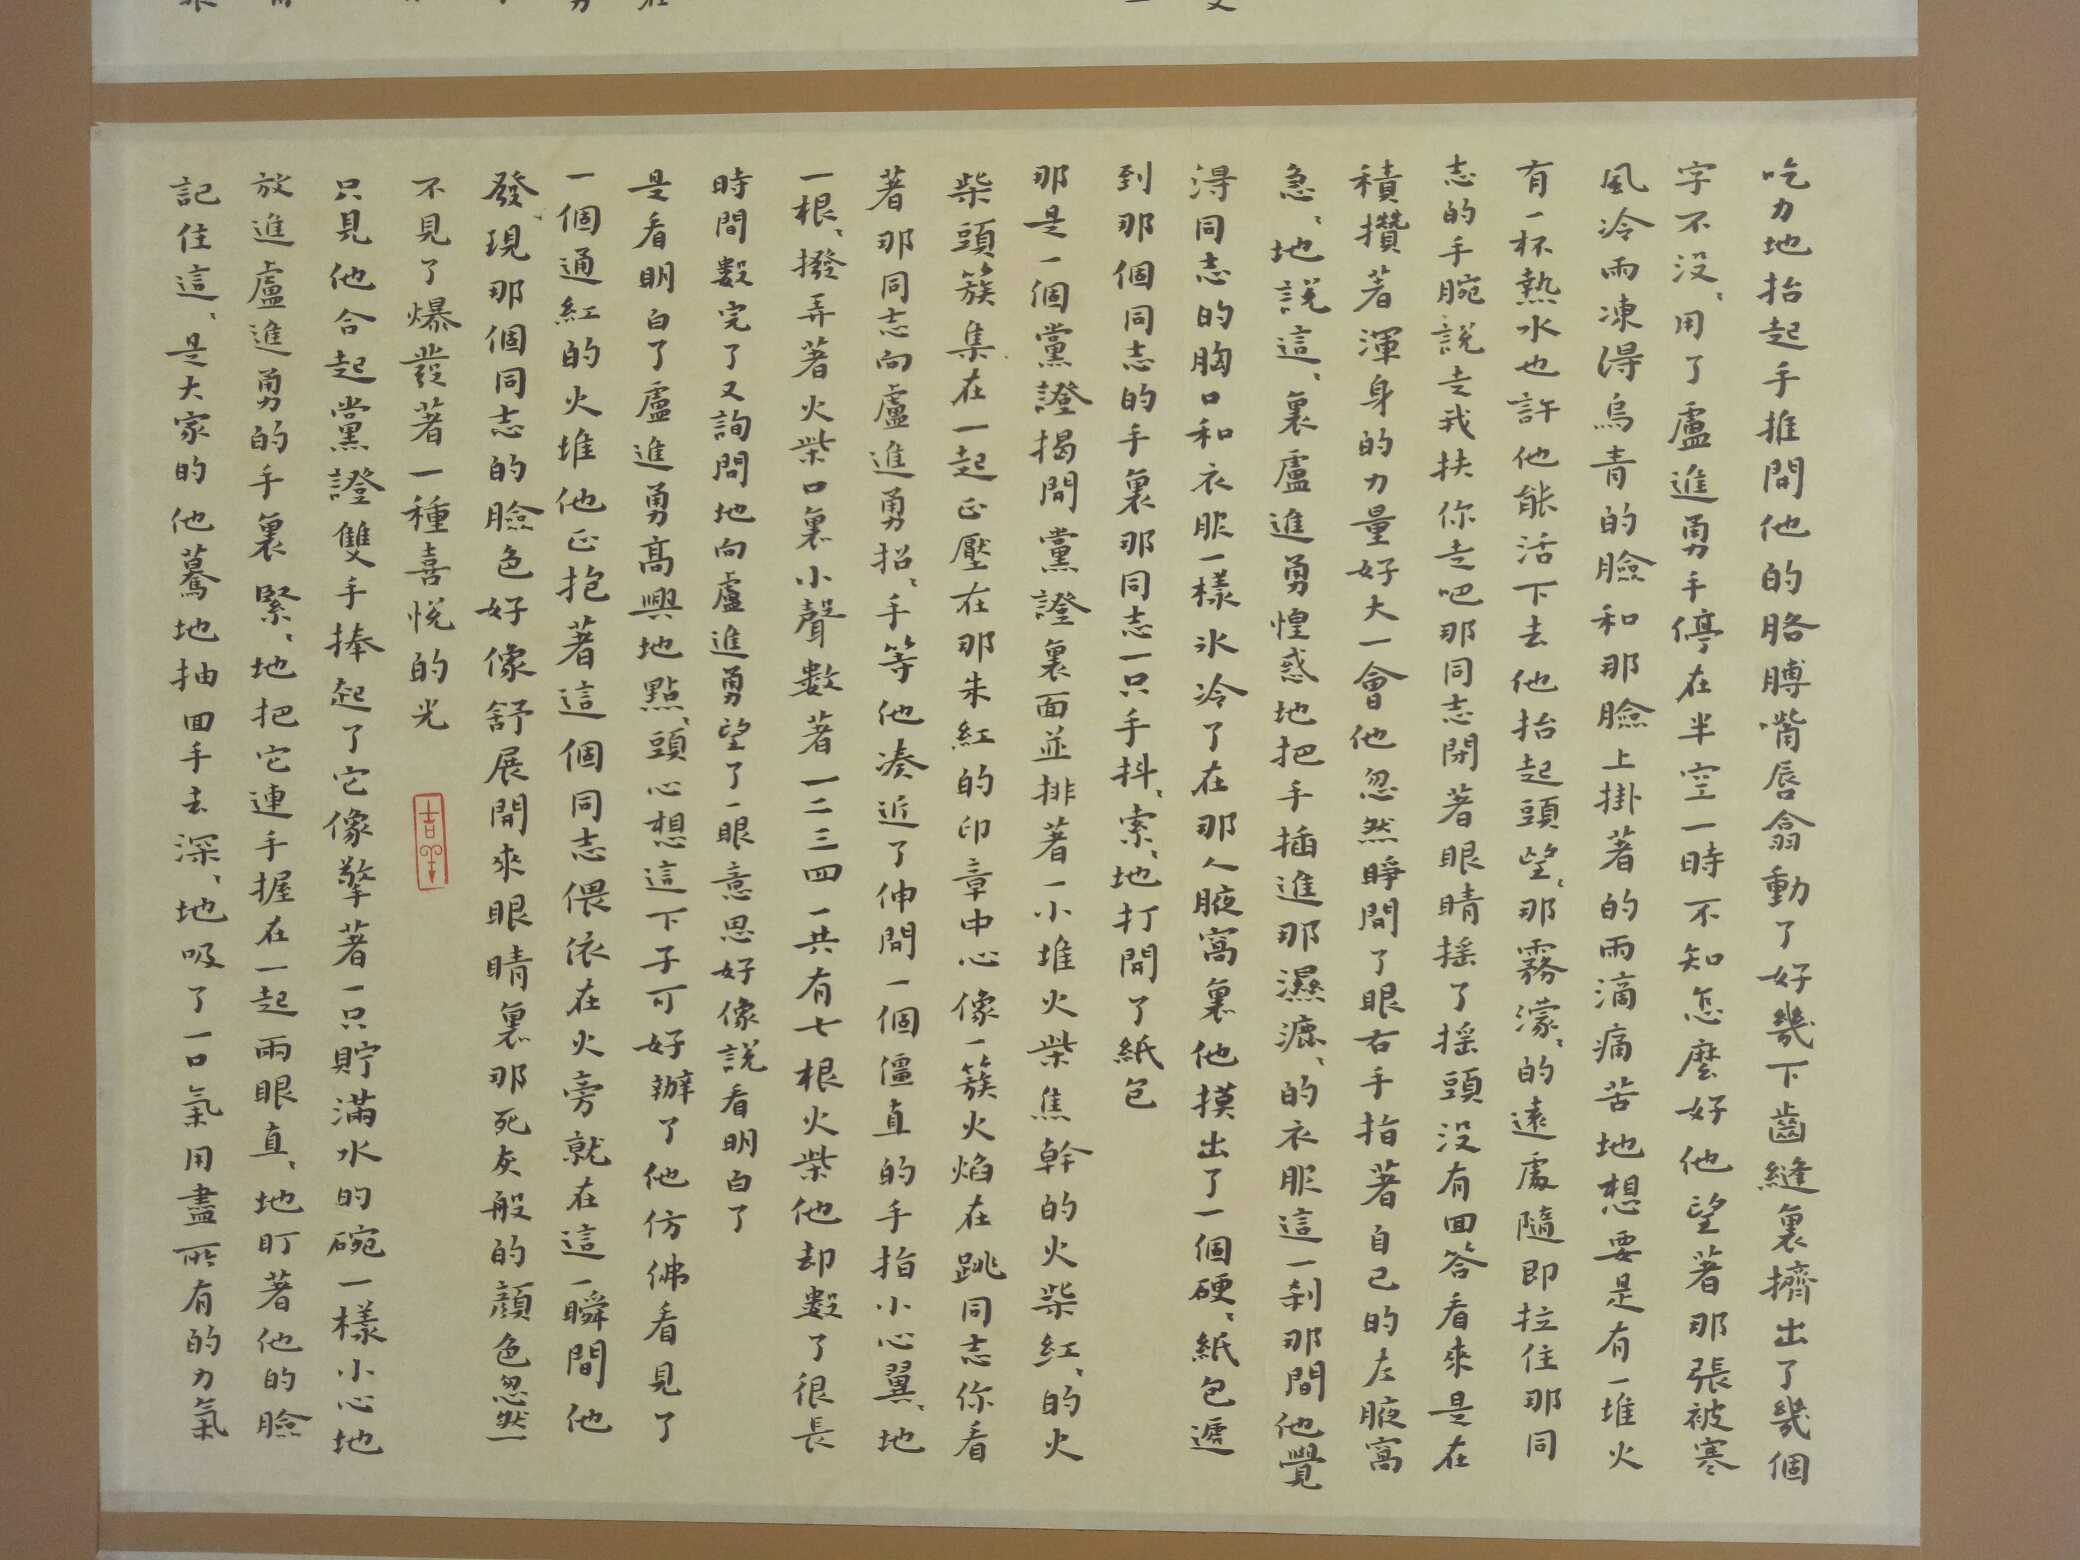 吃力地抬起手推開他的胳膊嘴唇翕動了好幾下齒縫裏擠出了幾個
字不没、用了盧進勇手停在半空一時不知怎麼好他望著那張被寒
風冷雨凍得烏青的臉和那臉上掛著的雨滴痛苦地想要是有一堆火
有一杯熱水也許他能活下去他抬起頭望、那霧濛、的遠處隨即拉住那同
志的手腕説走我扶你走吧那同志閉著眼睛摇了摇頭没有回答看來是在
積攢著渾身的力量好大一會他忽然睁開了眼右手指著自己的左腋窩
急、地説這、裏盧進勇惶惑地把手插進那濕漉、的衣服這一刹那間他覺
得同志的胸口和衣服一樣冰冷了在那人腋窩裏他摸出了一個硬、紙包遞
到那個同志的手裏那同志一只手抖、索、地打開了紙包
那是一個黨證揭開黨證裏面並排著一小堆火柴焦幹的火柴紅、的火
柴頭簇集在一起正壓在那朱紅的印章中心像一簇火焰在跳同志你看
著那同志向盧進勇招、手等他凑近了伸開一個僵直的手指小心翼、地
一根、撥弄著火柴口裏小聲数著一二三四一共有七根火柴他却數了很長
時間數完了又詢問地向盧進勇望了一眼意思好像説看明白了
是看明白了盧進勇高興地點、頭心想這下子可好辦了他仿佛看見了
一個通紅的火堆他正抱著這個同志偎依在火旁就在這一瞬間他
發、現那個同志的臉色好像舒展開來眼睛裏那死灰般的顔色忽然
不見了爆發著一種喜悦的光
只見他合起黨證雙手捧起了它像擎著一只貯滿水的碗一樣小心地
放進盧進勇的手裏緊、地把它連手握在一起兩眼直、地盯著他的臉
記住這、是大家的他驀地抽回手去深、地吸了一口氣用盡所有的力氣